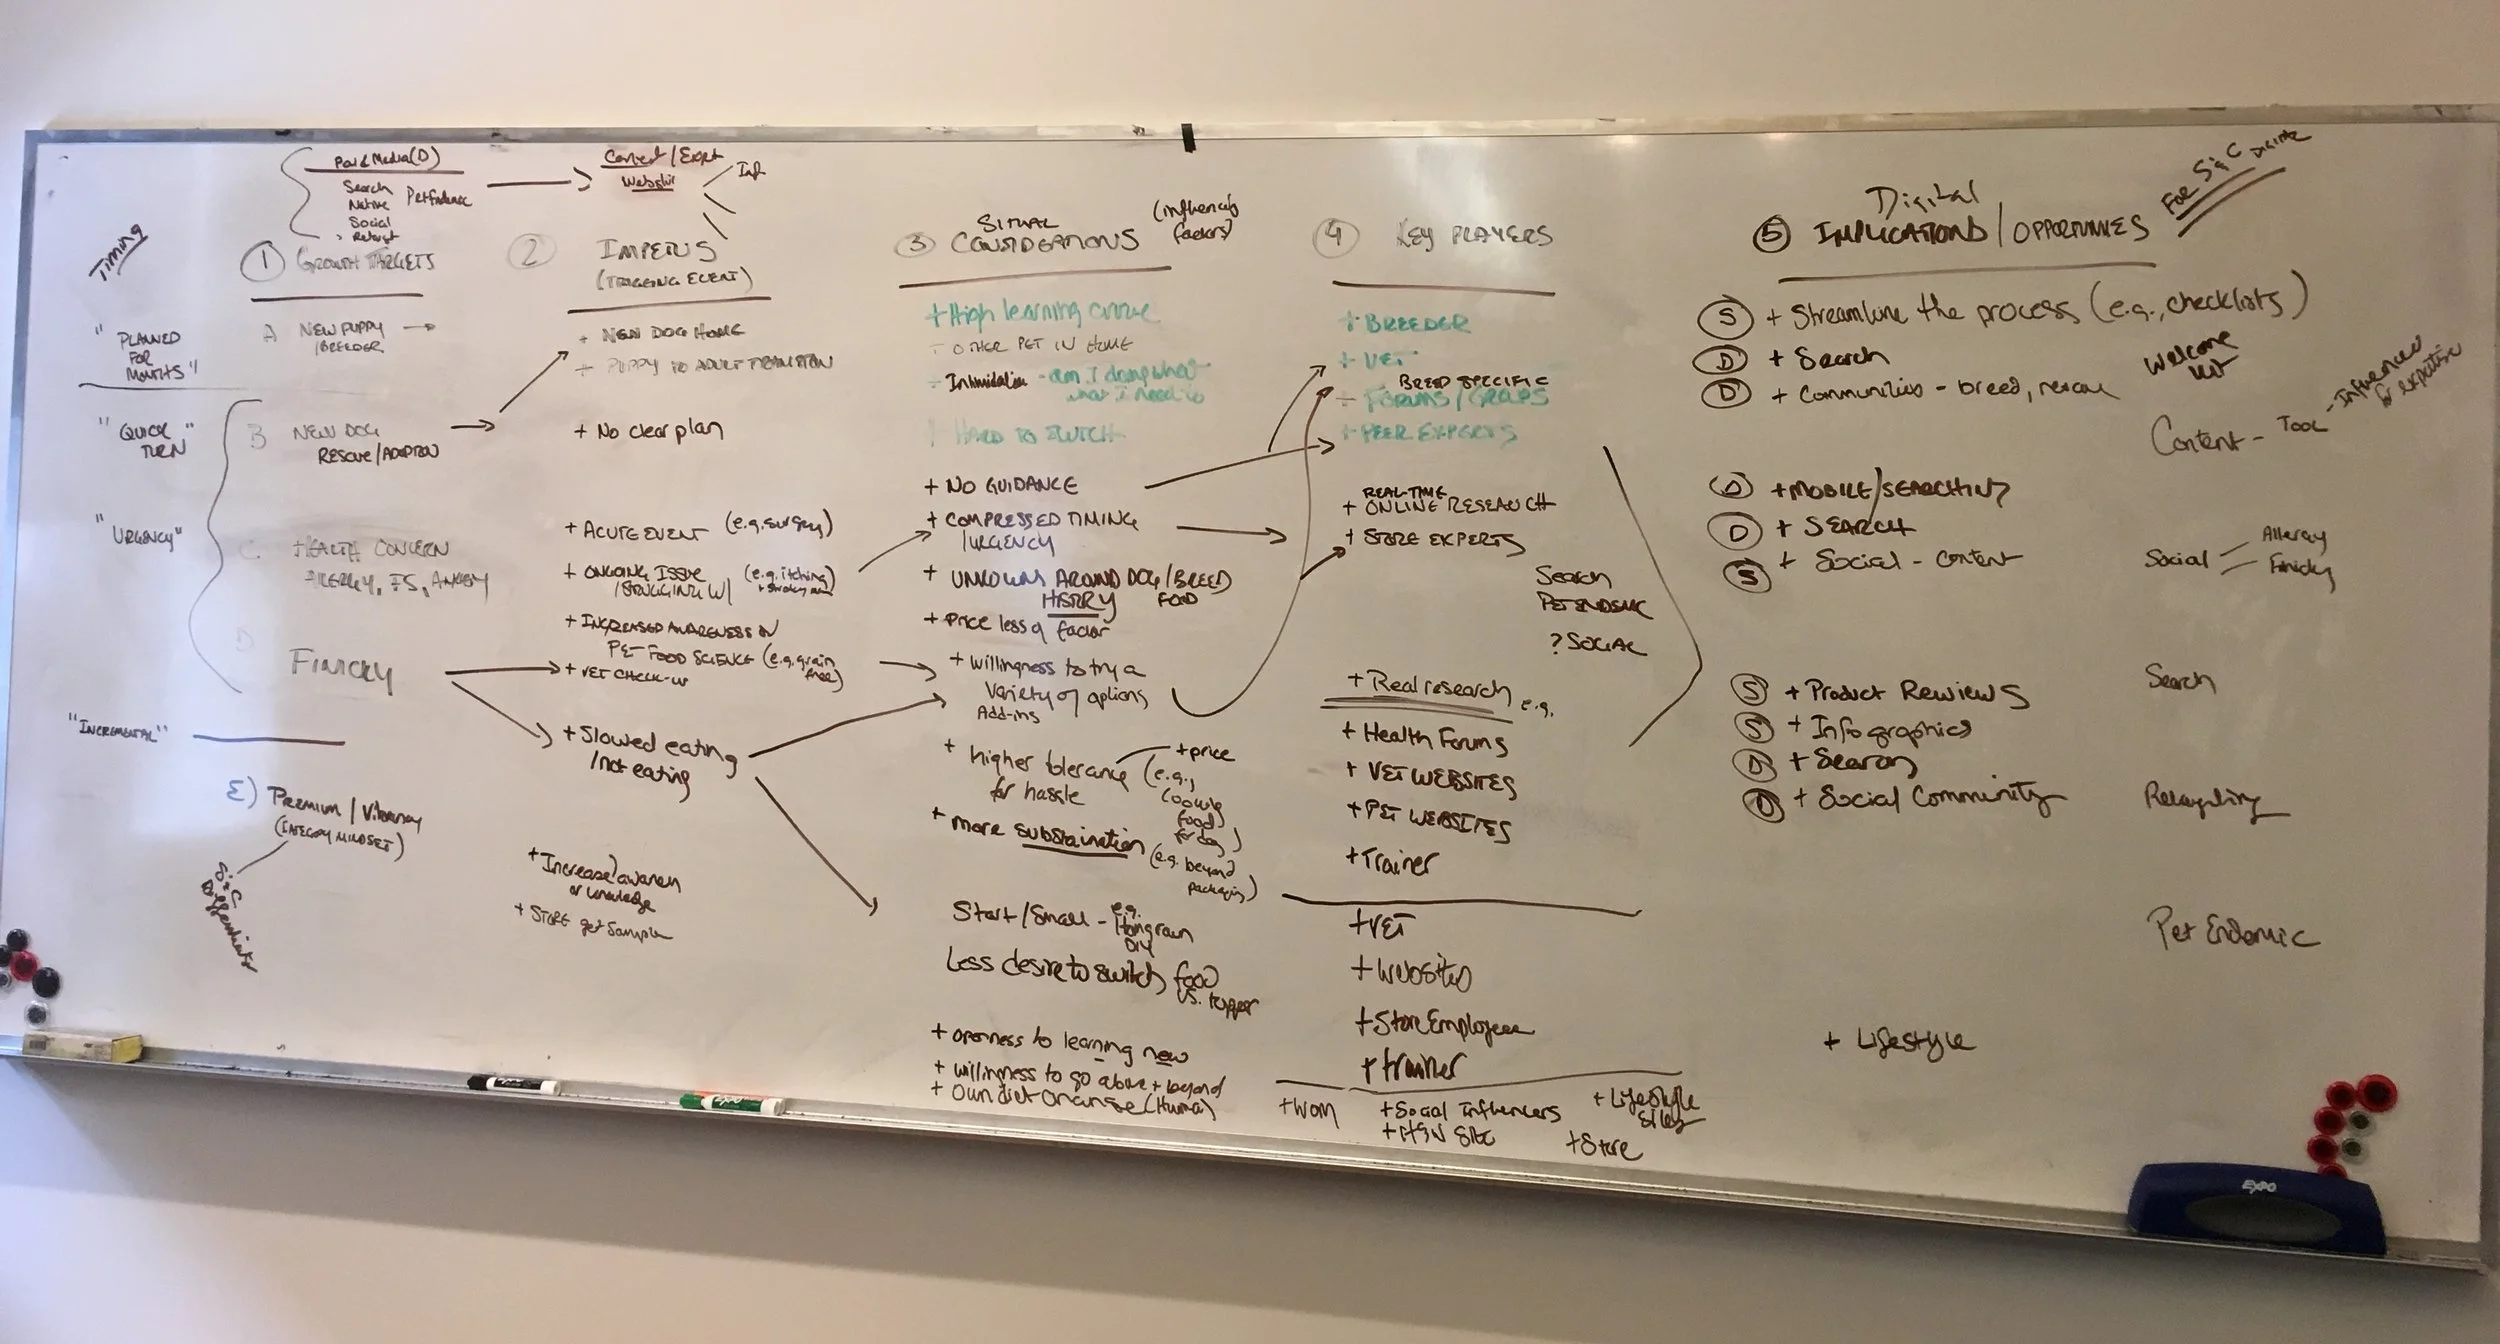 Timing
Paid Media (D)
Search
Native
Social
Content / Expt
① GROWTH TARGETS
"PLANNED
FOR
MONTHS"
A NEW PUPPY
/BREEDER
"QUICK
TURN"
B NEW DOG
RESCUE/ADOPTION
"URGENCY"
C. HEALTH CONCERN
D
FINICKY
"INCREMENTAL"
E) PREMIUM / Vibrancy
(CATEGORY MINDSET)
②
IMPETUS
(TRIGGERING EVENT)
+ NEW DOG HOME
+ PUPPY TO ADULT TRANSITION
+ No clear plan
+ ACUTE EVENT (e.g. surgery)
+ ONGOING ISSUE (e.g. itching
/STRUGGLING W/
+ INCREASED AWARENESS IN
PET FOOD SCIENCE (e.g. grain
free)
+ VET CHECK-UP
+ Slowed eating
/not eating
+ Increase/awaren
or knowledge
+ STORE get sample
③
CONSIDERATIONS
(influencing
factors)
+ High learning curve
+ OTHER PET IN HOME
Intimidation - am I doing what
what I need to
HARD TO SWITCH
+ NO GUIDANCE
+ COMPRESSED TIMING
/URGENCY
+ UNKNOWNS AROUND DOG/BREED
HISTORY FOOD
+ Price less of factor
+ willingness to try a
variety of options
Add-ins
+ higher tolerance
for hassle
+ price
(e.g.,
cooking
food
for dog)
+ more substaination
(e.g. beyond
packaging)
Start/Small - e.g.
DIY
Less desire to switch food
vs. topper
+ openness to learning new
+ willingness to go above + beyond
+ Own diet change (Human)
④ KEY PLAYERS
+ BREEDER
+ VET
BREED SPECIFIC
+ FORUMS/GROUPS
+ PEER EXPERTS
REAL-TIME
+ ONLINE RESEARCH
+ STORE EXPERTS
Search
PET ENDEMIC
? SOCIAL
+ Real research e.g.
+ Health Forums
+ VET WEBSITES
+ PET WEBSITES
+ Trainer
+ VET
+ Websites
+ Store Employee
+ trainer
+ WOM
+ Social Influencers
+ Lifestyle
Sites
+ Store
Digital
⑤ IMPLICATIONS / OPPORTUNITIES
FOR S&C DIGITAL
Ⓢ + Streamline the process (e.g., checklists)
Ⓓ + Search
Ⓓ + Communities - breed, rescue
Welcome
Content - Tool - Influencer
& expertise
Ⓓ + MOBILE/SEARCHING
Ⓓ + SEARCH
Ⓢ + Social - content
Social
Allergy
Finicky
Search
Ⓢ + Product Reviews
Ⓢ + Infographics
Ⓓ + Search
Ⓓ + Social Community
Pet Endemic
+ Lifestyle
EXPO
EXPO